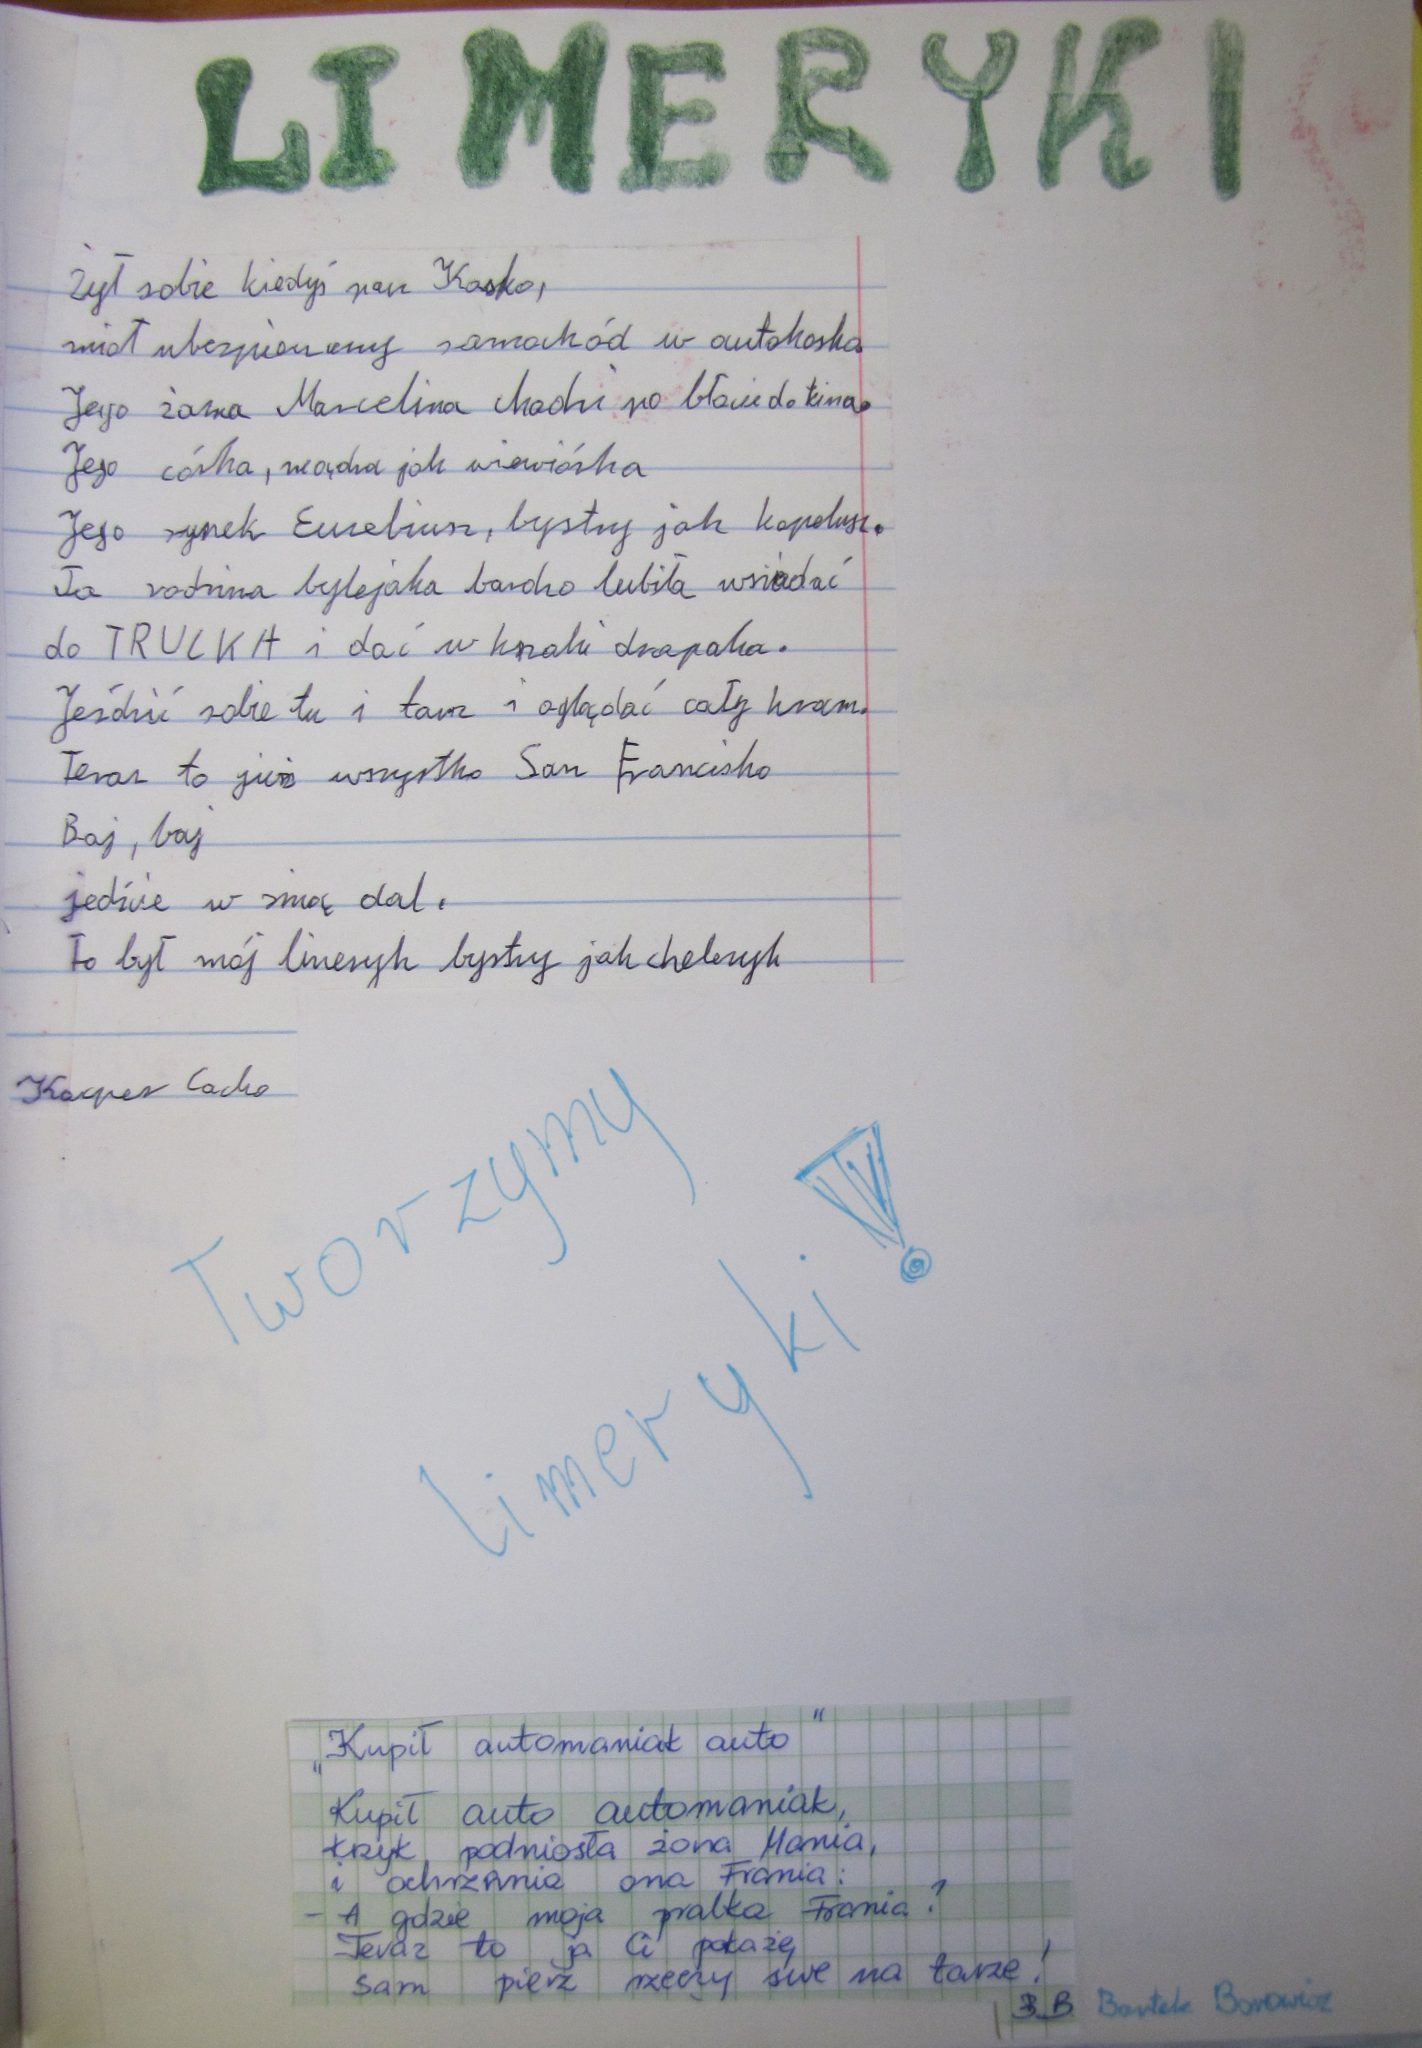 LIMERYKI
Żył sobie kiedyś pan Kasko,
miał ubezpieczony samochód w autokasko
Jego żona Marcelina chodzi po błocie do kina.
Jego córka, mądra jak wiewiórka
Jego synek Euzebiusz, bystry jak kapelusz.
Ta rodzina bylejaka bardzo lubiła wsiadać
do TRUCKA i dać w krzaki drapaka.
Jeździć sobie tu i tam i oglądać cały kram.
Teraz to już wszystko San Francisko
Baj, baj
jedzie w siną dal.
To był mój limeryk bystry jak choleryk
Kacper
Tworzymy
limeryki!
„Kupił automaniak auto"
Kupił auto automaniak,
krzyk podniosła żona Mania,
i ochrzania ona Frania:
- A gdzie moja pralka Frania?
Teraz to ja Ci pokażę
sam pierz rzeczy swe na tarze!
B.B. Bartek Borowicz